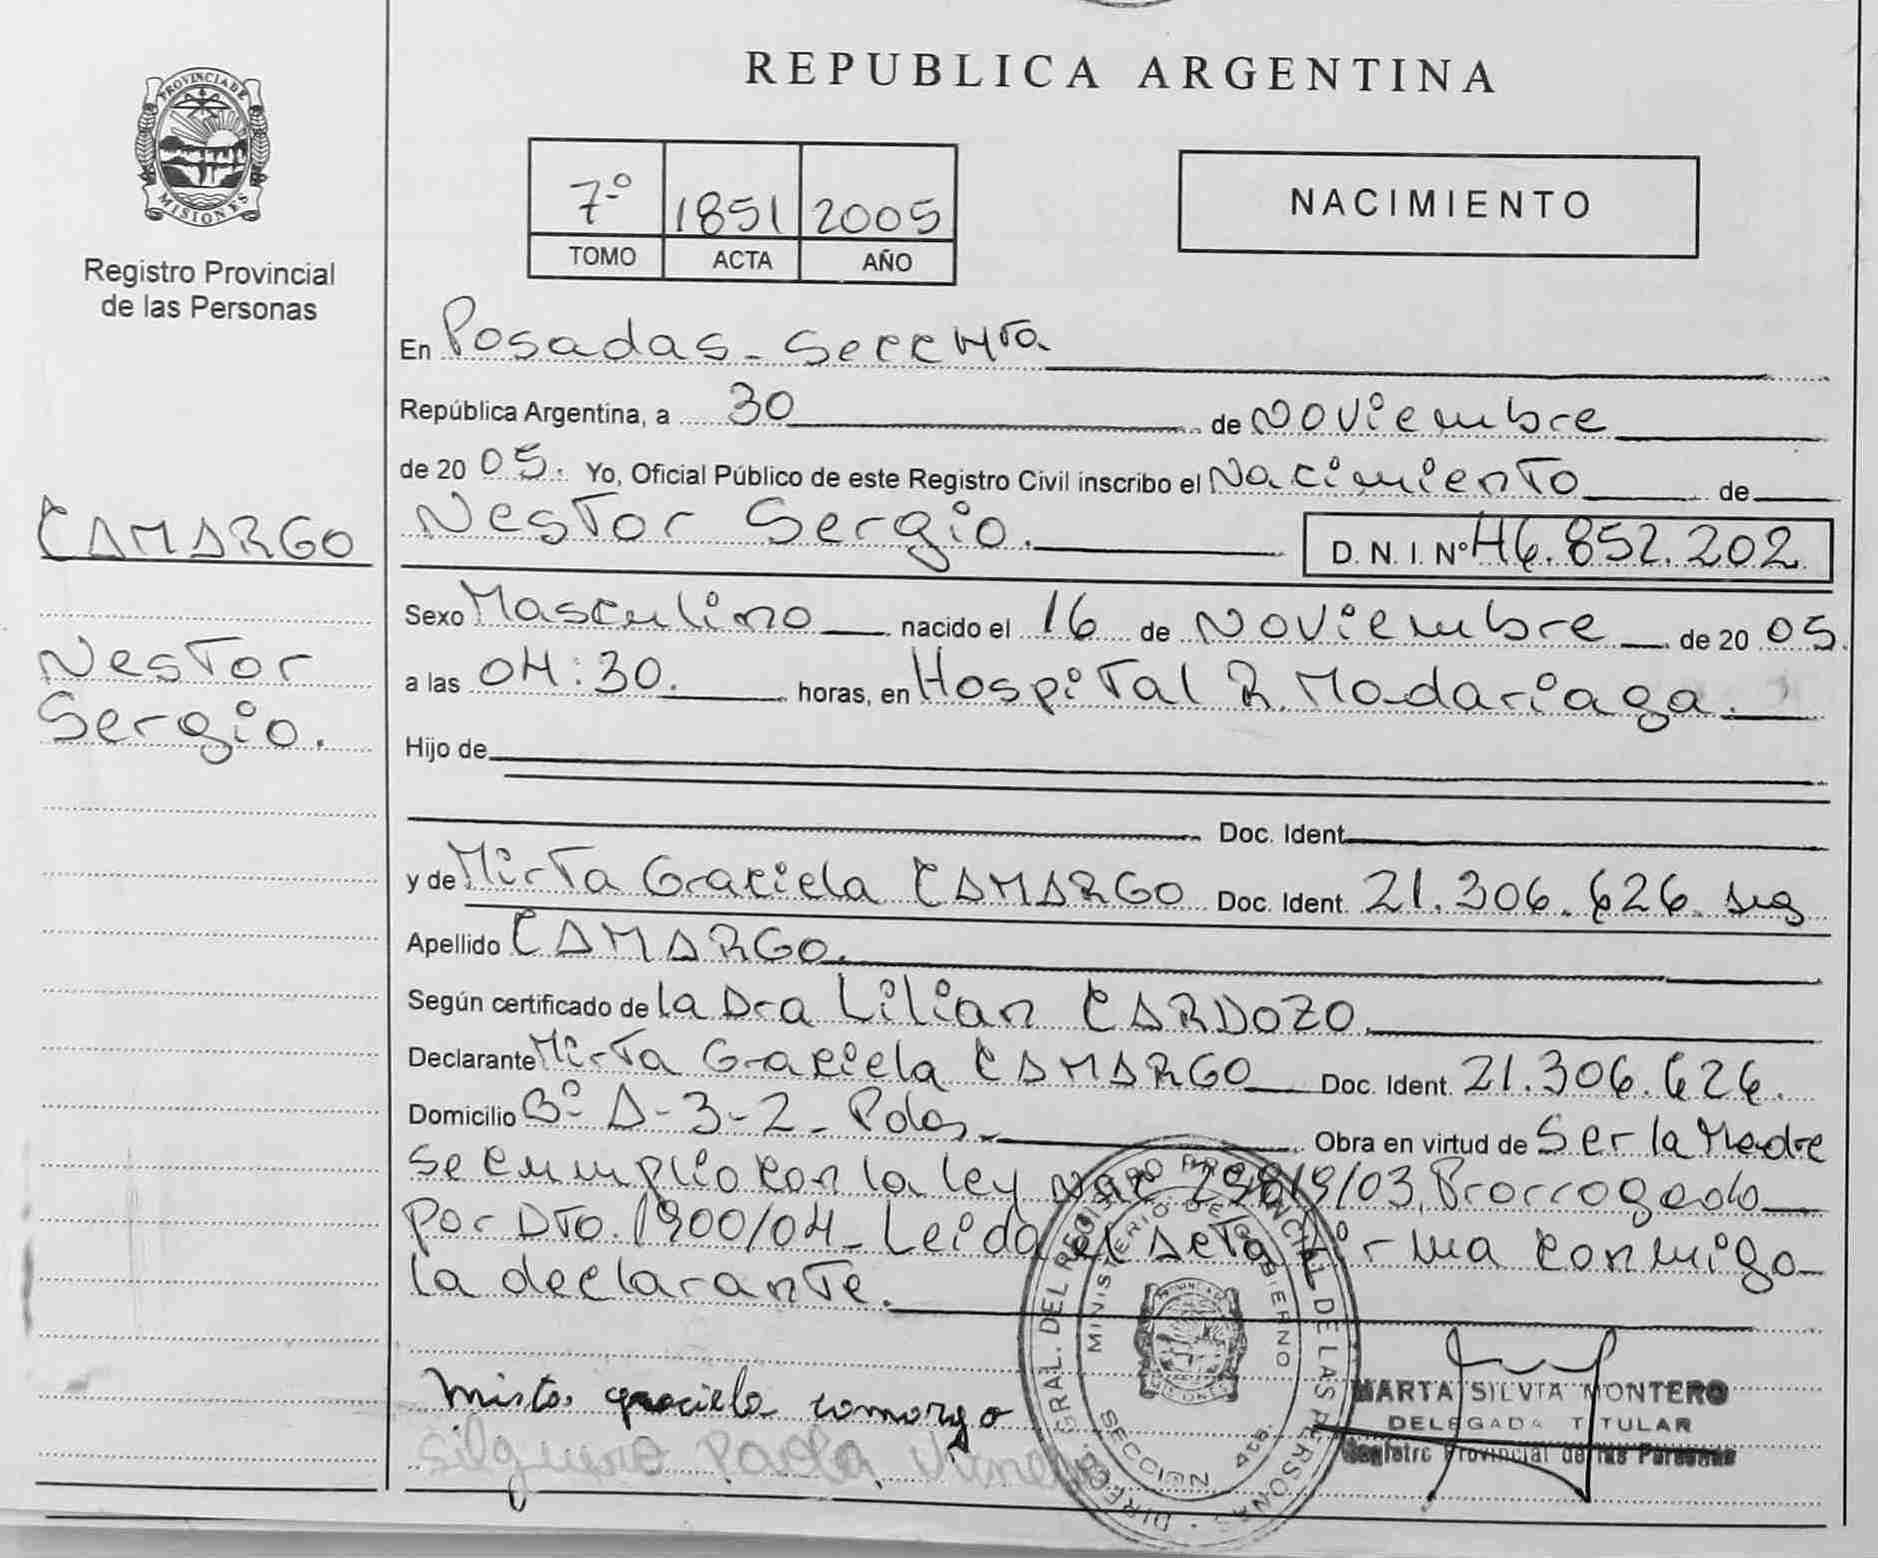 PROVINCIA DE
MISIONES
Registro Provincial
de las Personas
CAMARGO
Nestor
Sergio.
REPUBLICA ARGENTINA
7º 1851 2005
TOMO ACTA AÑO
NACIMIENTO
En Posadas - Secc 4ta
República Argentina, a 30 de Noviembre
de 20 05. Yo, Oficial Público de este Registro Civil inscribo el Nacimiento de
Nestor Sergio. D. N. I. Nº 46.852.202
Sexo Masculino nacido el 16 de Noviembre de 20 05.
a las 04:30. horas, en Hospital R. Madariaga.
Hijo de
Doc. Ident.
y de Mirta Graciela CAMARGO Doc. Ident. 21.306.626
Apellido CAMARGO.
Según certificado de la Dra Lilian CARDOZO.
Declarante Mirta Graciela CAMARGO Doc. Ident. 21.306.626.
Domicilio Bº A-3-2- Pdas. Obra en virtud de Ser la Madre
Se cumplio con la ley Nac 25819/03, Prorrogado
por DTO. 1900/04 - Leida el Acta firma conmigo
la declarante.
mirta graciela camargo
MARTA SILVIA MONTERO
DELEGADA TITULAR
Registro Provincial de las Personas
DIREC. GRAL. DEL REGISTRO PROVINCIAL DE LAS PERSONAS
MINISTERIO DE GOBIERNO
SECCION 4ta.